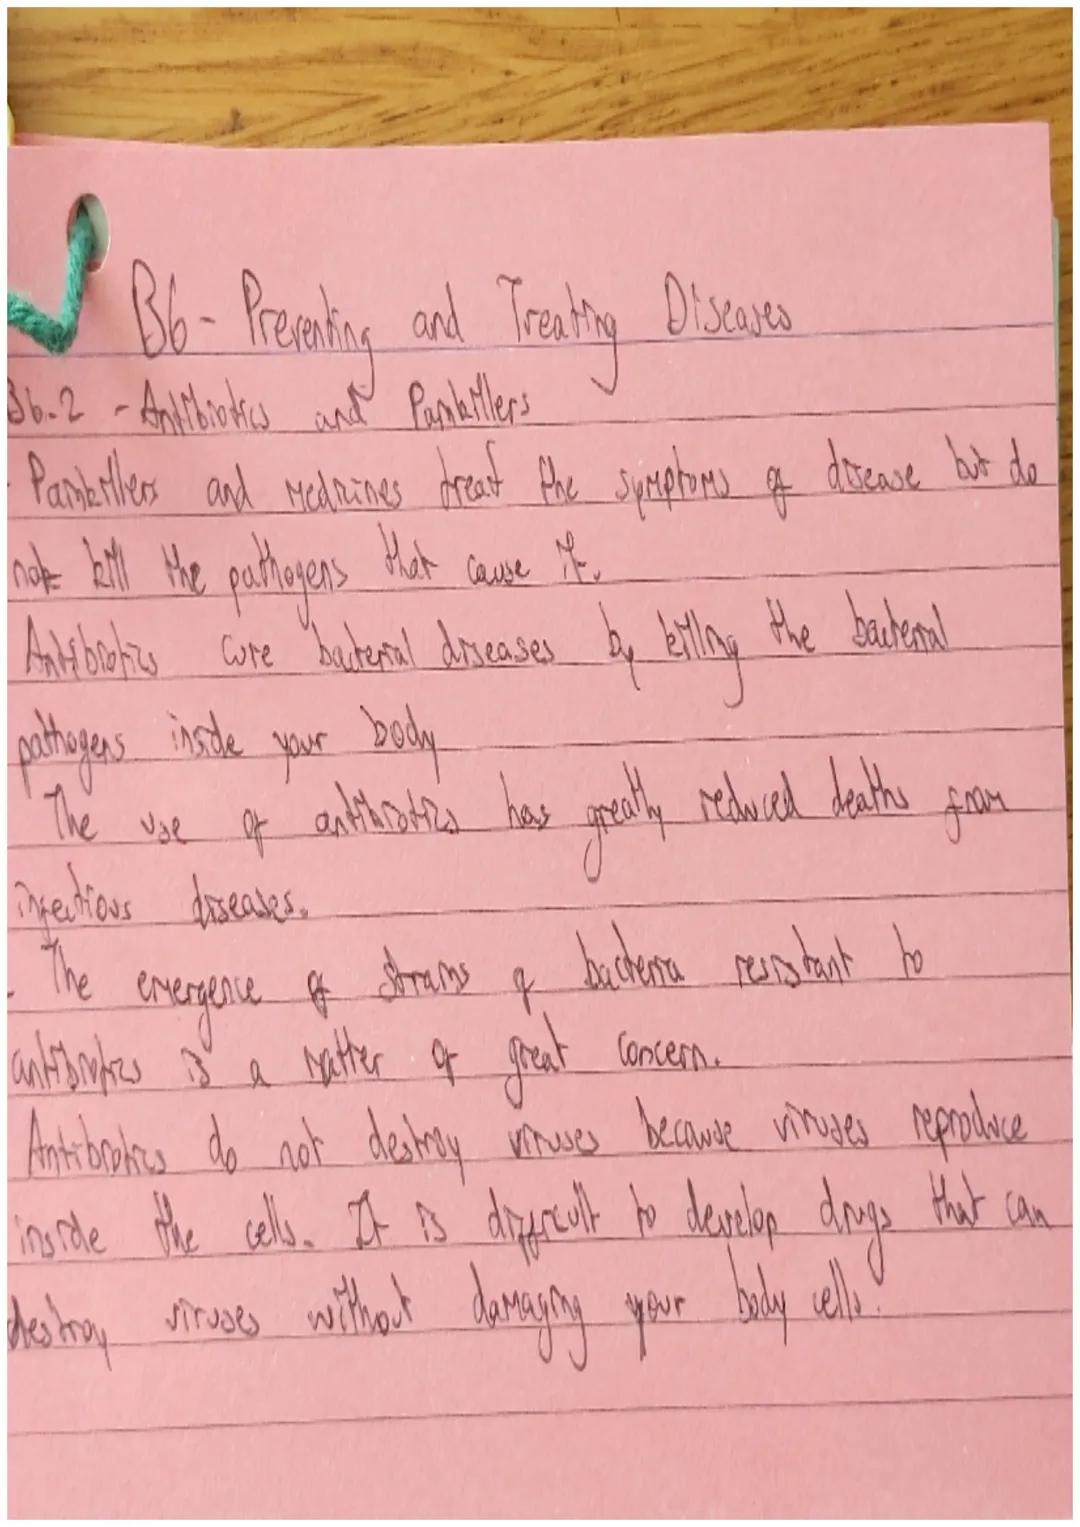 B6 - Preventing and Treating Diseases
B6.2 - Antibiotics and Painkillers
- Painkillers and medicines treat the symptoms of disease but do
not kill the pathogens that cause it.
Antibiotics cure bacterial diseases by killing the bacterial
pathogens inside your body
The use of antibiotics has greatly reduced deaths from
infectious diseases.
- The emergence of strains of bacteria resistant to
antibiotics is a matter of great concern.
Antibiotics do not destroy viruses because viruses reproduce
inside the cells. It is difficult to develop drugs that can
destroy viruses without damaging your body cells.